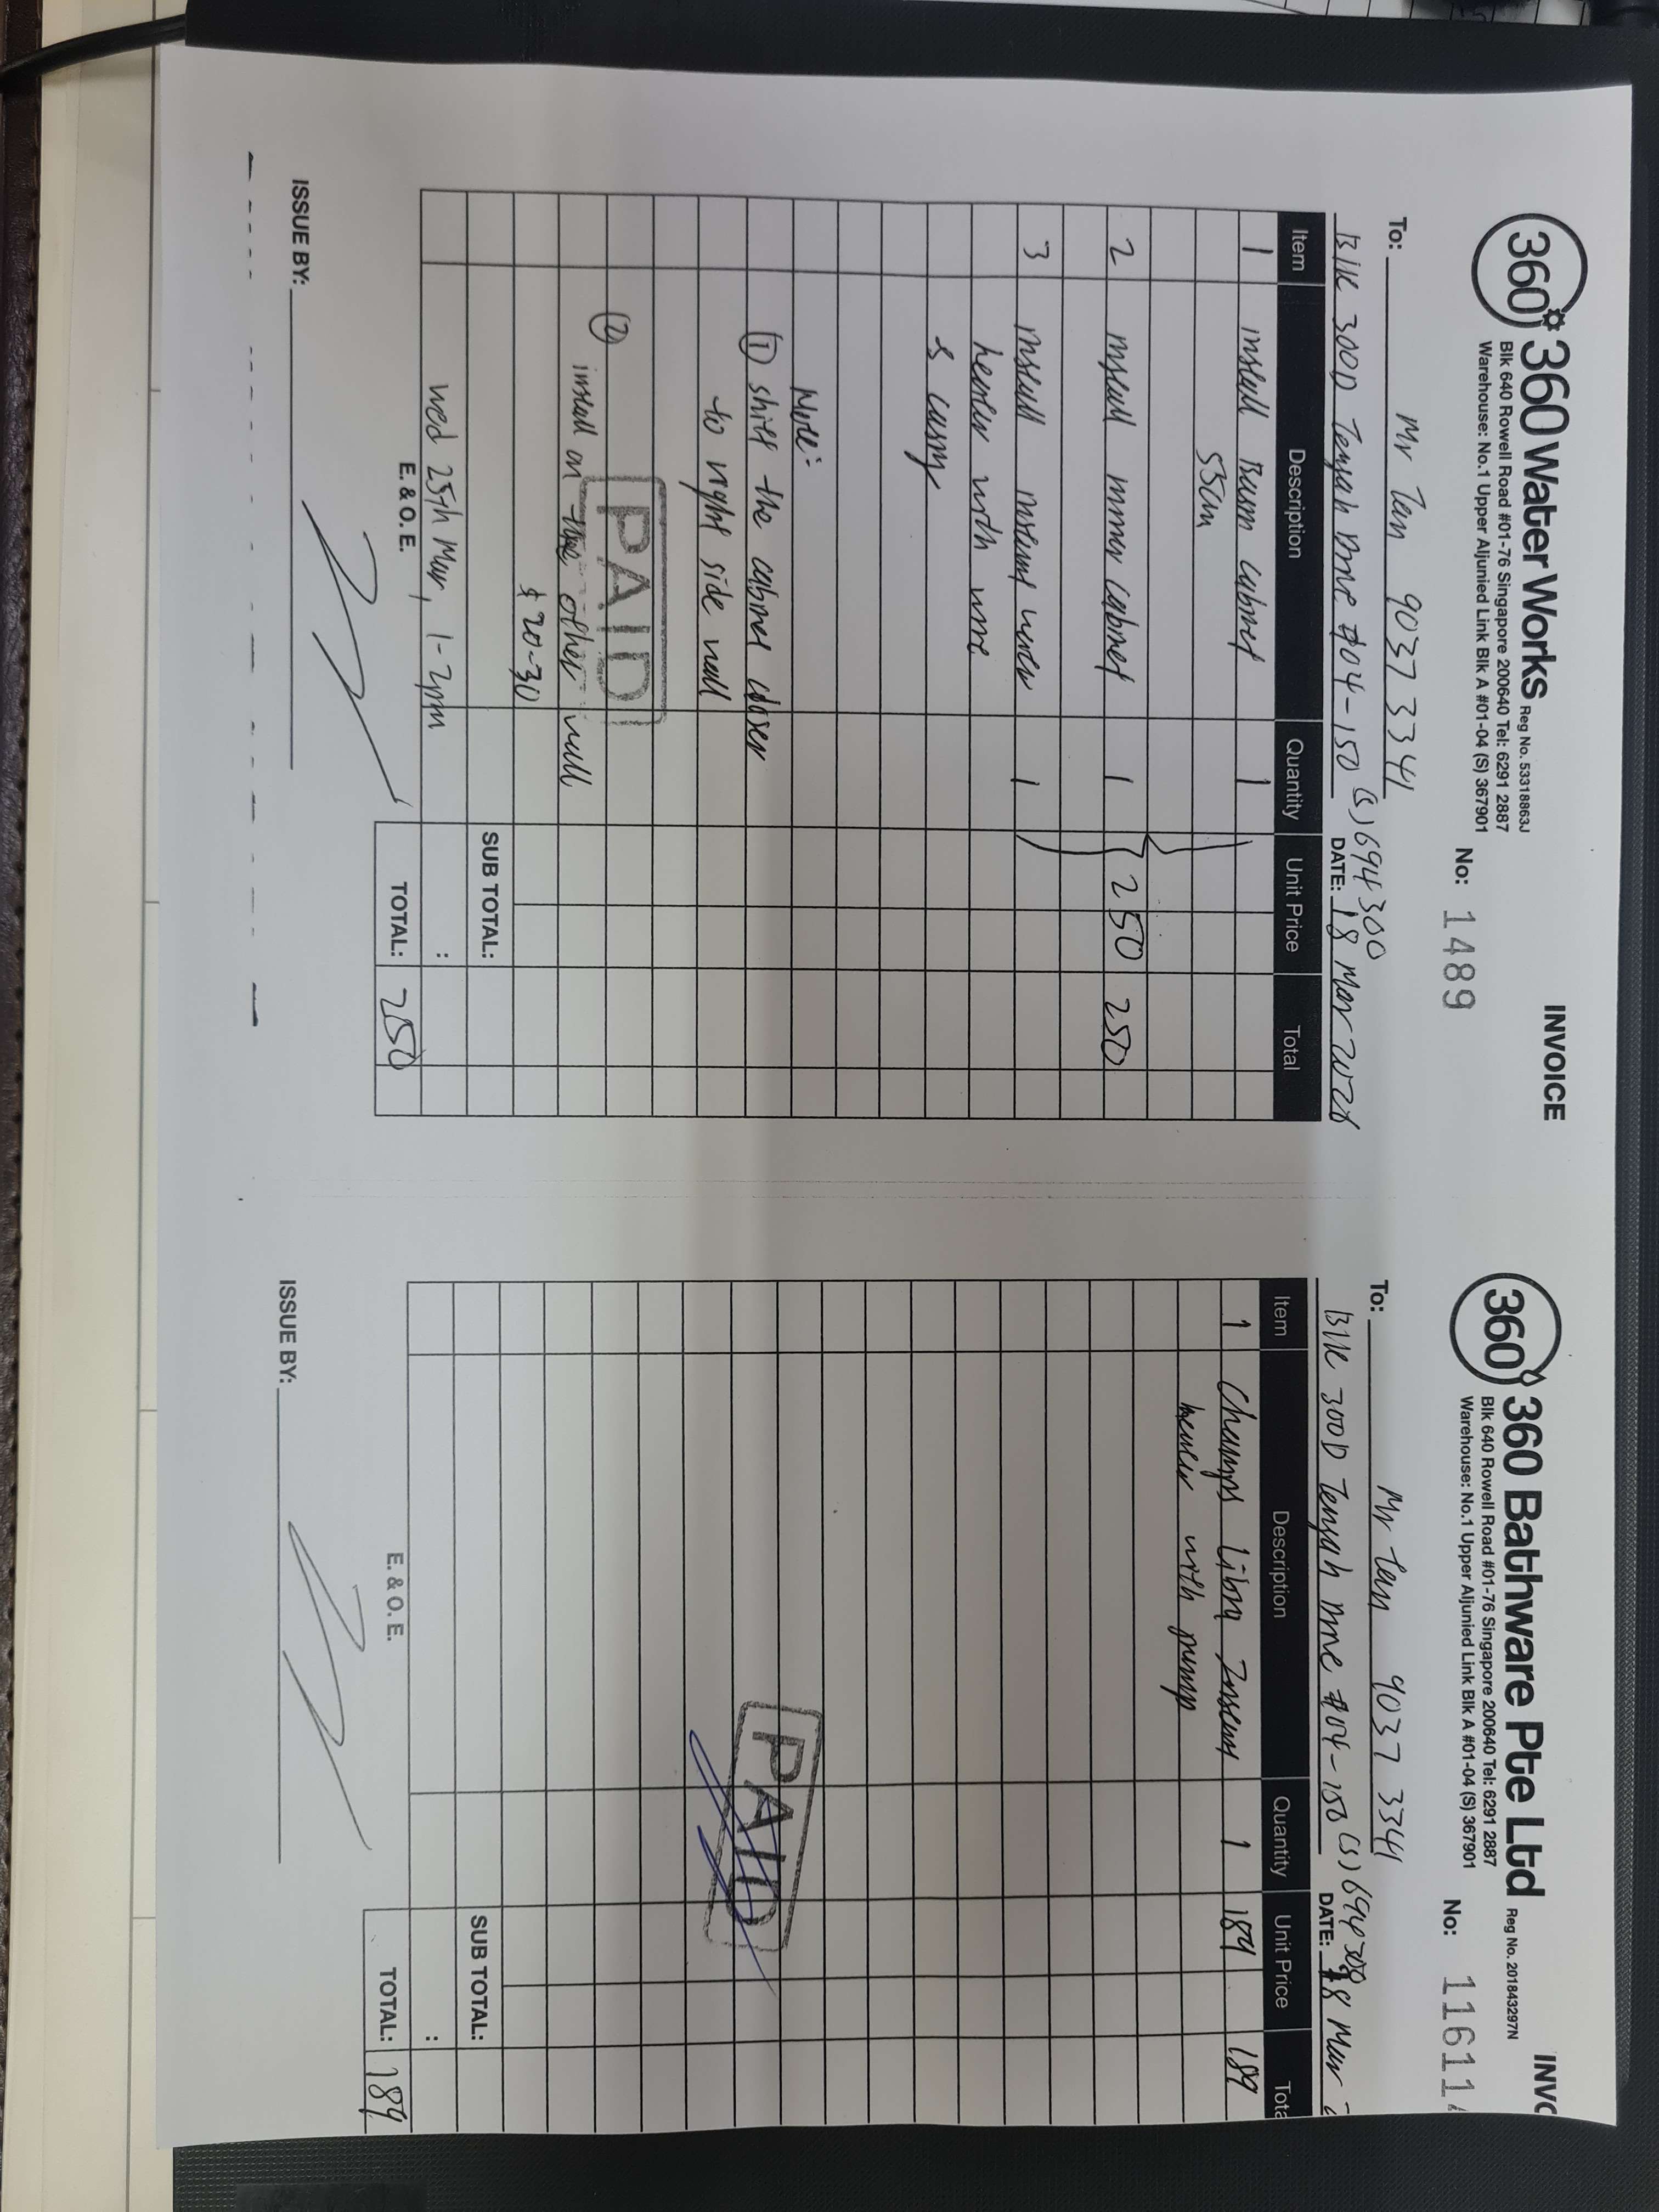 360
360 Water Works Reg No. 53318863J
Blk 640 Rowell Road #01-76 Singapore 200640 Tel: 6291 2887
Warehouse: No.1 Upper Aljunied Link Blk A #01-04 (S) 367901
INVOICE
No: 1489
To: Mr Tan 9037 3341
Blk 300D Tengah Drive #04-150 (S) 694300
DATE: 18 Mar
Item Description Quantity Unit Price Total
1 install Basin cabinet 1
55cm
2 install mirror cabinet 1 250 250
3 install instant heater 1
heater with wire
& casing
Note:
① shift the cabinet closer
to right side wall
PAID
②
install on the other wall
$20-30
SUB TOTAL:
wed 25th Mar, 1-2pm :
E. & O. E.
TOTAL: 250
ISSUE BY:
360
360 Bathware Pte Ltd Reg No. 201843297N
Blk 640 Rowell Road #01-76 Singapore 200640 Tel: 6291 2887
Warehouse: No.1 Upper Aljunied Link Blk A #01-04 (S) 367901
INVO
No: 11611
To: Mr Tan 9037 3341
Blk 300D Tengah Drive #04-150 (S) 694300
DATE: 18 Mar 2
Item Description Quantity Unit Price Tota
1 Champs Libra Instant 1 189 189
heater with pump
PAID
SUB TOTAL:
:
E. & O. E.
TOTAL: 189
ISSUE BY: